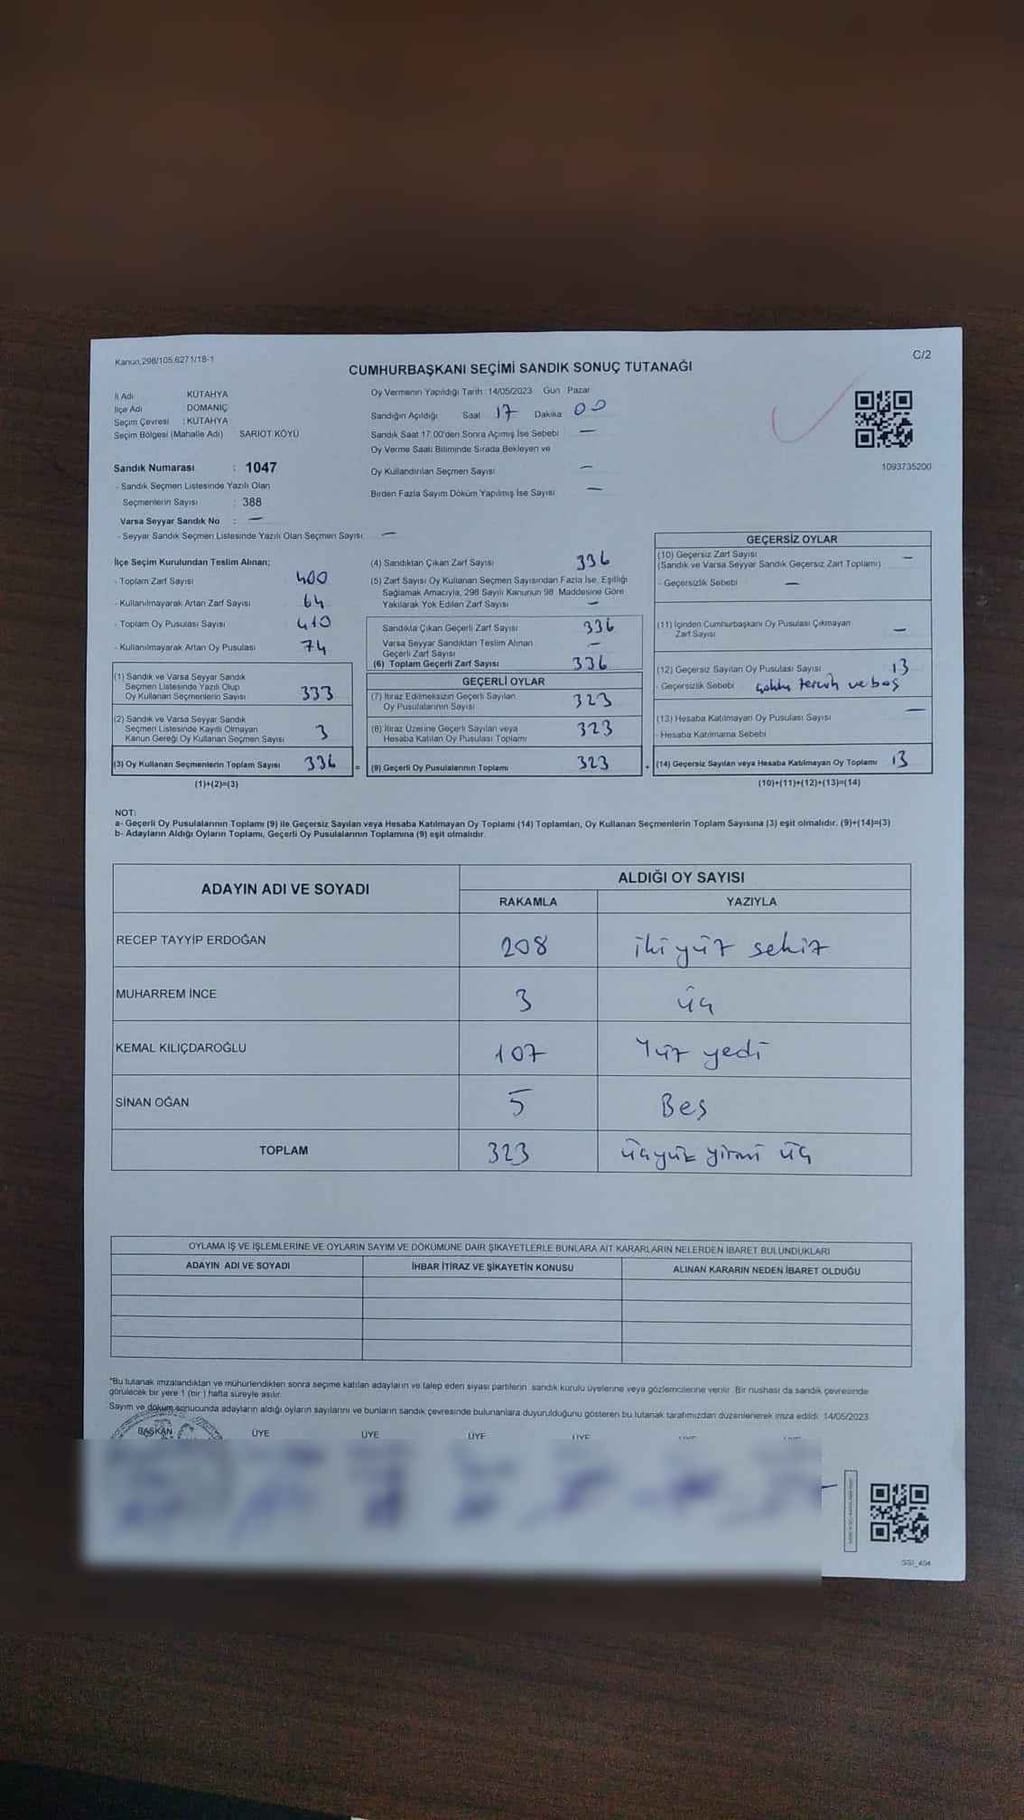 Kanun,298/105.6271/18-1
C/2
CUMHURBAŞKANI SEÇİMİ SANDIK SONUÇ TUTANAĞI
İl Adı KÜTAHYA
İlçe Adı DOMANİÇ
Seçim Çevresi : KÜTAHYA
Seçim Bölgesi (Mahalle Adı) SARIOT KÖYÜ
Sandık Numarası : 1047
- Sandık Seçmen Listesinde Yazılı Olan
Seçmenlerin Sayısı : 388
Varsa Seyyar Sandık No : —
- Seyyar Sandık Seçmen Listesinde Yazılı Olan Seçmen Sayısı —
Oy Vermenin Yapıldığı Tarih :14/05/2023 Gün : Pazar
Sandığın Açıldığı Saat 17 Dakika 00
Sandık Saat 17:00'den Sonra Açımış İse Sebebi —
Oy Verme Saati Bitiminde Sırada Bekleyen ve
Oy Kullandırılan Seçmen Sayısı —
Birden Fazla Sayım Döküm Yapılmış İse Sayısı —
1093735200
İlçe Seçim Kurulundan Teslim Alınan;
- Toplam Zarf Sayısı 400
- Kullanılmayarak Artan Zarf Sayısı 64
- Toplam Oy Pusulası Sayısı 410
- Kullanılmayarak Artan Oy Pusulası 74
(1) Sandık ve Varsa Seyyar Sandık
Seçmen Listesinde Yazılı Olup
Oy Kullanan Seçmenlerin Sayısı 333
(2) Sandık ve Varsa Seyyar Sandık
Seçmen Listesinde Kayıtlı Olmayan
Kanun Gereği Oy Kullanan Seçmen Sayısı 3
(3) Oy Kullanan Seçmenlerin Toplam Sayısı 336
(1)+(2)=(3)
(4) Sandıktan Çıkan Zarf Sayısı 336
(5) Zarf Sayısı Oy Kullanan Seçmen Sayısından Fazla İse, Eşitliği
Sağlamak Amacıyla, 298 Sayılı Kanunun 98. Maddesine Göre
Yakılarak Yok Edilen Zarf Sayısı —
Sandıkta Çıkan Geçerli Zarf Sayısı 336
Varsa Seyyar Sandıktan Teslim Alınan
Geçerli Zarf Sayısı —
(6) Toplam Geçerli Zarf Sayısı 336
GEÇERLİ OYLAR
(7) İtiraz Edilmeksizin Geçerli Sayılan
Oy Pusulalarının Sayısı 323
(8) İtiraz Üzerine Geçerli Sayılan veya
Hesaba Katılan Oy Pusulası Toplamı 323
(9) Geçerli Oy Pusulalarının Toplamı 323
GEÇERSİZ OYLAR
(10) Geçersiz Zarf Sayısı —
(Sandık ve Varsa Seyyar Sandık Geçersiz Zarf Toplamı)
- Geçersizlik Sebebi —
(11) İçinden Cumhurbaşkanı Oy Pusulası Çıkmayan
Zarf Sayısı —
(12) Geçersiz Sayılan Oy Pusulası Sayısı 13
- Geçersizlik Sebebi tercih ve boş
(13) Hesaba Katılmayan Oy Pusulası Sayısı —
- Hesaba Katılmama Sebebi
(14) Geçersiz Sayılan veya Hesaba Katılmayan Oy Toplamı 13
(10)+(11)+(12)+(13)=(14)
NOT:
a- Geçerli Oy Pusulalarının Toplamı (9) ile Geçersiz Sayılan veya Hesaba Katılmayan Oy Toplamı (14) Toplamları, Oy Kullanan Seçmenlerin Toplam Sayısına (3) eşit olmalıdır. (9)+(14)=(3)
b- Adayların Aldığı Oyların Toplamı, Geçerli Oy Pusulalarının Toplamına (9) eşit olmalıdır.
ADAYIN ADI VE SOYADI
ALDIĞI OY SAYISI
RAKAMLA YAZIYLA
RECEP TAYYİP ERDOĞAN 208 iki yüz sekiz
MUHARREM İNCE 3 üç
KEMAL KILIÇDAROĞLU 107 Yüz yedi
SİNAN OĞAN 5 Beş
TOPLAM 323 üçyüz yirmi üç
OYLAMA İŞ VE İŞLEMLERİNE VE OYLARIN SAYIM VE DÖKÜMÜNE DAİR ŞİKAYETLERLE BUNLARA AİT KARARLARIN NELERDEN İBARET BULUNDUKLARI
ADAYIN ADI VE SOYADI İHBAR İTİRAZ VE ŞİKAYETİN KONUSU ALINAN KARARIN NEDEN İBARET OLDUĞU
*Bu tutanak imzalandıktan ve mühürlendikten sonra seçime katılan adayların ve talep eden siyasi partilerin sandık kurulu üyelerine veya gözlemcilerine verilir. Bir nüshası da sandık çevresinde
görülecek bir yere 1 (bir ) hafta süreyle asılır.
Sayım ve döküm sonucunda adayların aldığı oyların sayılarını ve bunların sandık çevresinde bulunanlara duyurulduğunu gösteren bu tutanak tarafımızdan düzenlenerek imza edildi. 14/05/2023
BAŞKAN ÜYE ÜYE ÜYE ÜYE
SSI_404